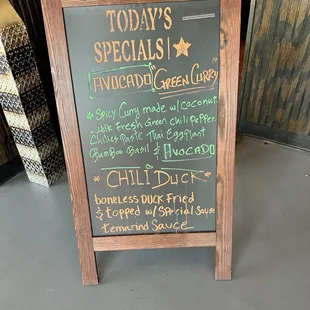 TODAY'S
SPECIALS
"AVOCADO GREEN CURRY"
* Spicy Curry made w/ coconut
milk Fresh Green chili Pepper
Chilies Basil Thai Eggplant
Bamboo Basil & AVOCADO
* CHILI DUCK *
boneless DUCK Fried
& topped w/ SPecial Sauce
temarind Sauce